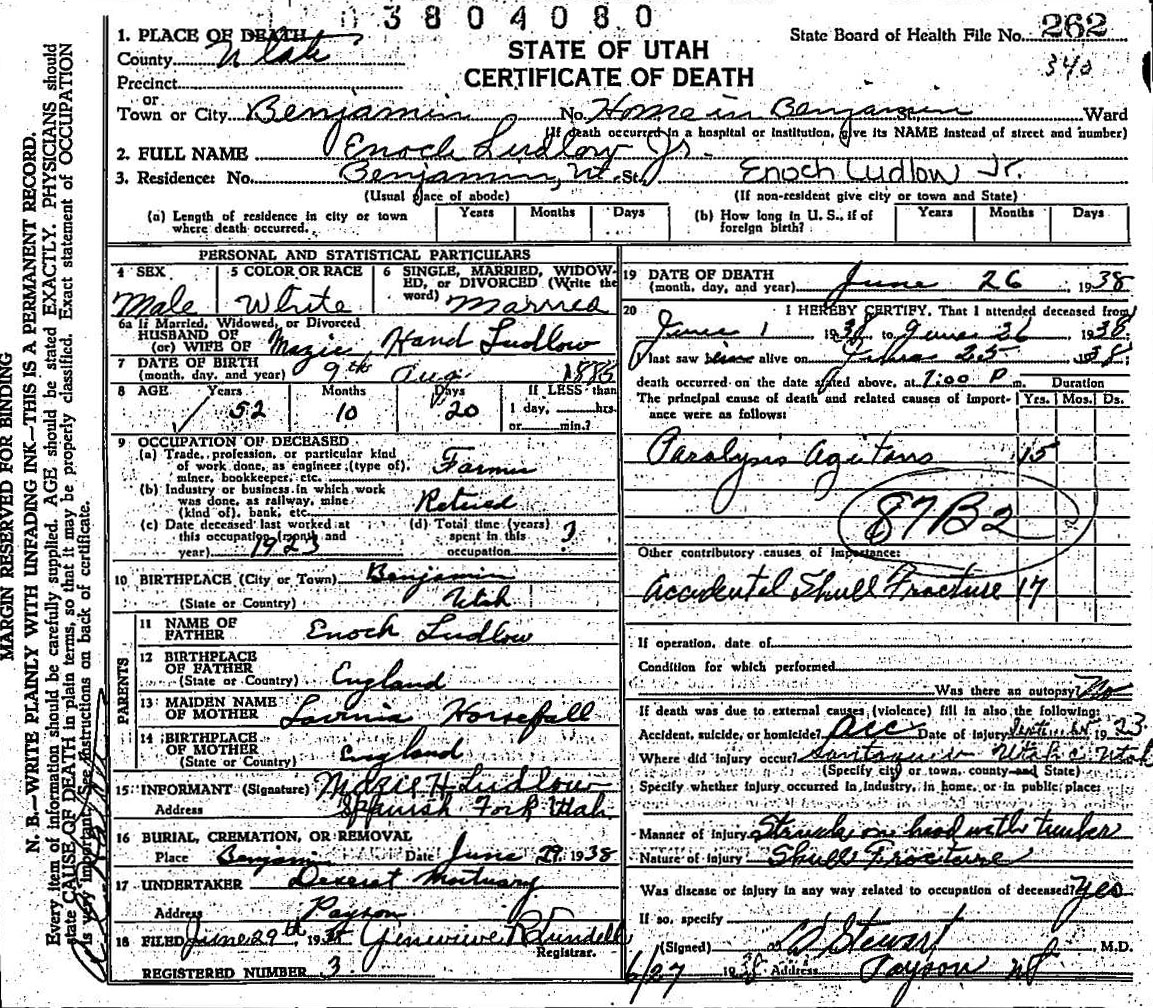 03804080
1. PLACE OF DEATH
County Utah
STATE OF UTAH
CERTIFICATE OF DEATH
State Board of Health File No. 262
340
Precinct
or
Town or City Benjamin No. Home in Benjamin St. Ward
(If death occurred in a hospital or institution, give its NAME instead of street and number)
2. FULL NAME Enoch Ludlow Jr.
3. Residence: No. Benjamin, Ut. St. Enoch Ludlow Jr.
(Usual place of abode) (If non-resident give city or town and State)
(a) Length of residence in city or town where death occurred. Years Months Days
(b) How long in U. S., if of foreign birth? Years Months Days
PERSONAL AND STATISTICAL PARTICULARS
4 SEX
Male
5 COLOR OR RACE
White
6 SINGLE, MARRIED, WIDOWED, OR DIVORCED (Write the word) Married
6a If Married, Widowed, or Divorced
HUSBAND OF
(or) WIFE OF Mazie Hand Ludlow
7 DATE OF BIRTH
(month, day, and year) 9th Aug 1885
8 AGE Years Months Days If LESS than
52 10 20 1 day, hrs.
or min.?
9 OCCUPATION OF DECEASED
(a) Trade, profession, or particular kind
of work done, as engineer (type of),
miner, bookkeeper, etc. Farmer
(b) Industry or business in which work
was done, as railway, mine
(kind of), bank, etc. Retired
(c) Date deceased last worked at
this occupation (month and
year) 1923
(d) Total time (years)
spent in this
occupation ?
10 BIRTHPLACE (City or Town) Benjamin
(State or Country) Utah
PARENTS
11 NAME OF
FATHER Enoch Ludlow
12 BIRTHPLACE
OF FATHER
(State or Country) England
13 MAIDEN NAME
OF MOTHER Lavinia Horsefall
14 BIRTHPLACE
OF MOTHER
(State or Country) England
15 INFORMANT (Signature) Mazie H Ludlow
Address Spanish Fork Utah
16 BURIAL, CREMATION, OR REMOVAL
Place Benjamin Date June 29, 1938
17 UNDERTAKER Deseret Mortuary
Address Payson
18 FILED June 29th, 1938 Genevieve R Lundell
Registrar.
REGISTERED NUMBER 3
19 DATE OF DEATH
(month, day, and year) June 26, 1938
20 I HEREBY CERTIFY, That I attended deceased from
June 1 1938 to June 26 1938
I last saw him alive on June 25 1938
death occurred on the date stated above, at 7:00 P m. Duration
The principal cause of death and related causes of importance were as follows: Yrs. Mos. Ds.
Paralysis Agitans 15
87B2
Other contributory causes of importance:
Accidental Skull Fracture 17
If operation, date of
Condition for which performed
Was there an autopsy? No
If death was due to external causes (violence) fill in also the following:
Accident, suicide, or homicide? Acc Date of injury 1923
Where did injury occur? Santaquin Utah c. Utah
(Specify city or town, county and State)
Specify whether injury occurred in industry, in home, or in public place:
Manner of injury Struck on head with timber
Nature of injury Skull Fracture
Was disease or injury in any way related to occupation of deceased? Yes
If so, specify
(Signed) Stewart, M.D.
6/27 1938 Address Payson Ut
MARGIN RESERVED FOR BINDING
N. B.—WRITE PLAINLY WITH UNFADING INK—THIS IS A PERMANENT RECORD.
Every item of information should be carefully supplied. AGE should be stated EXACTLY. PHYSICIANS should
state CAUSE OF DEATH in plain terms, so that it may be properly classified. Exact statement of OCCUPATION
is very important. See instructions on back of certificate.